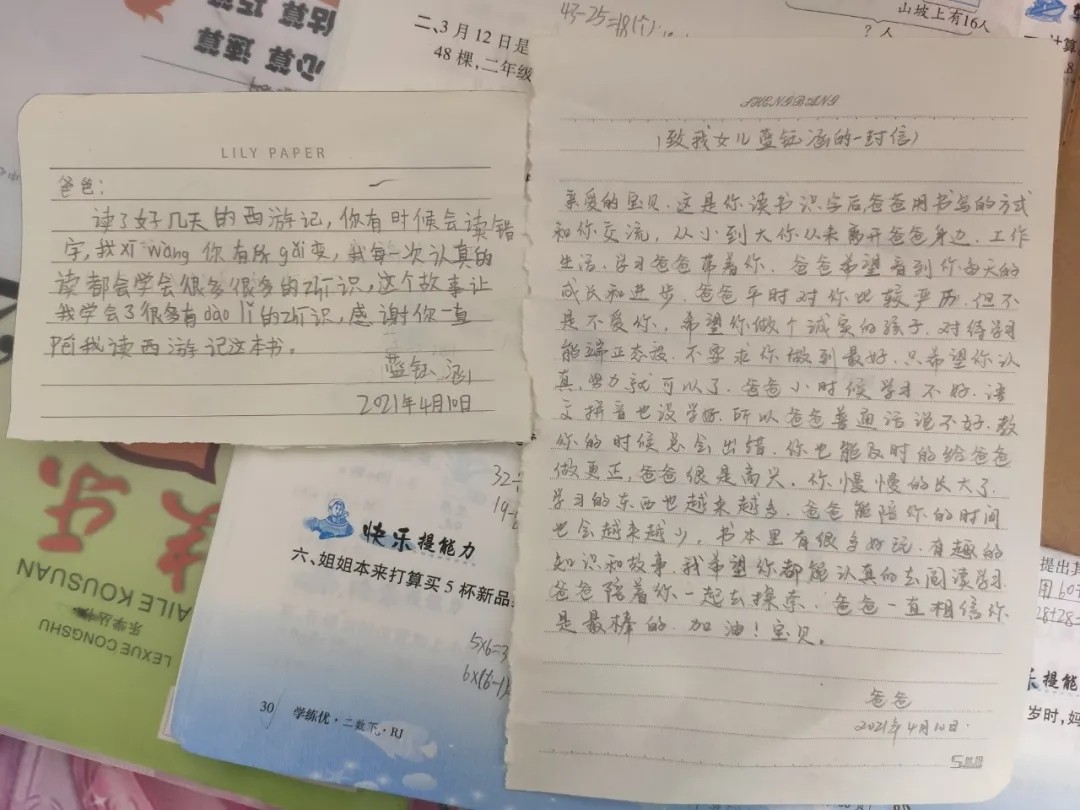 估算 巧算
心算 速算
二、3月12日是
48棵,二年级
43-25=18(个)
山坡上有16人
?人
计算
LILY PAPER
爸爸:
读了好几天的西游记,你有时候会读错
字,我xī wàng 你有所gǎi变,我每一次认真的
读都会学会很多很多的zhī识,这个故事让
我学会了很多有dào lǐ的zhī识,感谢你一直
陪我读西游记这本书。
蓝钰涵
2021年4月10日
SHENGBANG
(致我女儿蓝钰涵的一封信)
亲爱的宝贝.这是你读书识字后爸爸用书写的方式
和你交流,从小到大你从来离开爸爸身边.工作
生活.学习爸爸带着你.爸爸希望看到你每天的
成长和进步.爸爸平时对你比较严历.但不
是不爱你.希望你做个诚实的孩子.对待学习
能端正态度.不要求你做到最好.只希望你认
真,努力就可以了.爸爸小时候学习不好.语
文拼音也没学好.所以爸爸普通话说不好.教
你的时候总会出错.你也能及时的给爸爸
做更正,爸爸很是高兴.你慢慢的长大了.
学习的东西也越来越多.爸爸能陪你的时间
也会越来越少,书本里有很多好玩.有趣的
知识和故事.我希望你都能认真的去阅读学习.
爸爸陪着你一起去探索.爸爸一直相信你
是最棒的.加油!宝贝。
爸爸
2021年4月10日.
快乐提能力
六、姐姐本来打算买5杯新品
5×6=3
30 学练优·二数下·RJ
KOUSUAN
乐学丛书
LEXUE CONGSHU
提出其
乐提能
岁时,妈